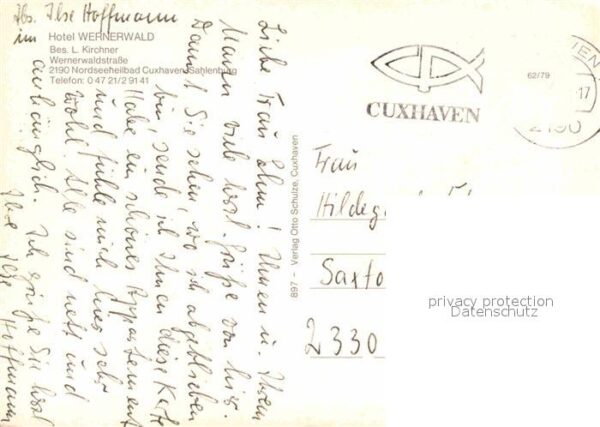 Abs. Ilse Hoffmann
im Hotel WERNERWALD
Bes. L. Kirchner
Wernerwaldstraße
2190 Nordseeheilbad Cuxhaven-Sahlenburg
Telefon: 0 47 21/2 91 41
Liebe Frau Ehm! Ihnen u. Ihrem
Mann viele herzl. Grüße von hier.
Damit Sie sehen, wo ich abgeblieben
bin, sende ich Ihnen diese Karte
Habe ein schönes Appartement
und fühle mich hier sehr
wohl. Alle sind nett und
anhänglich. Ich grüße Sie herzl
Ihre Ilse Hoffmann
897 - Verlag Otto Schulze, Cuxhaven
CUXHAVEN
62/79
17
2190
Frau
Hildeg
Saxto
2330
privacy protection
Datenschutz